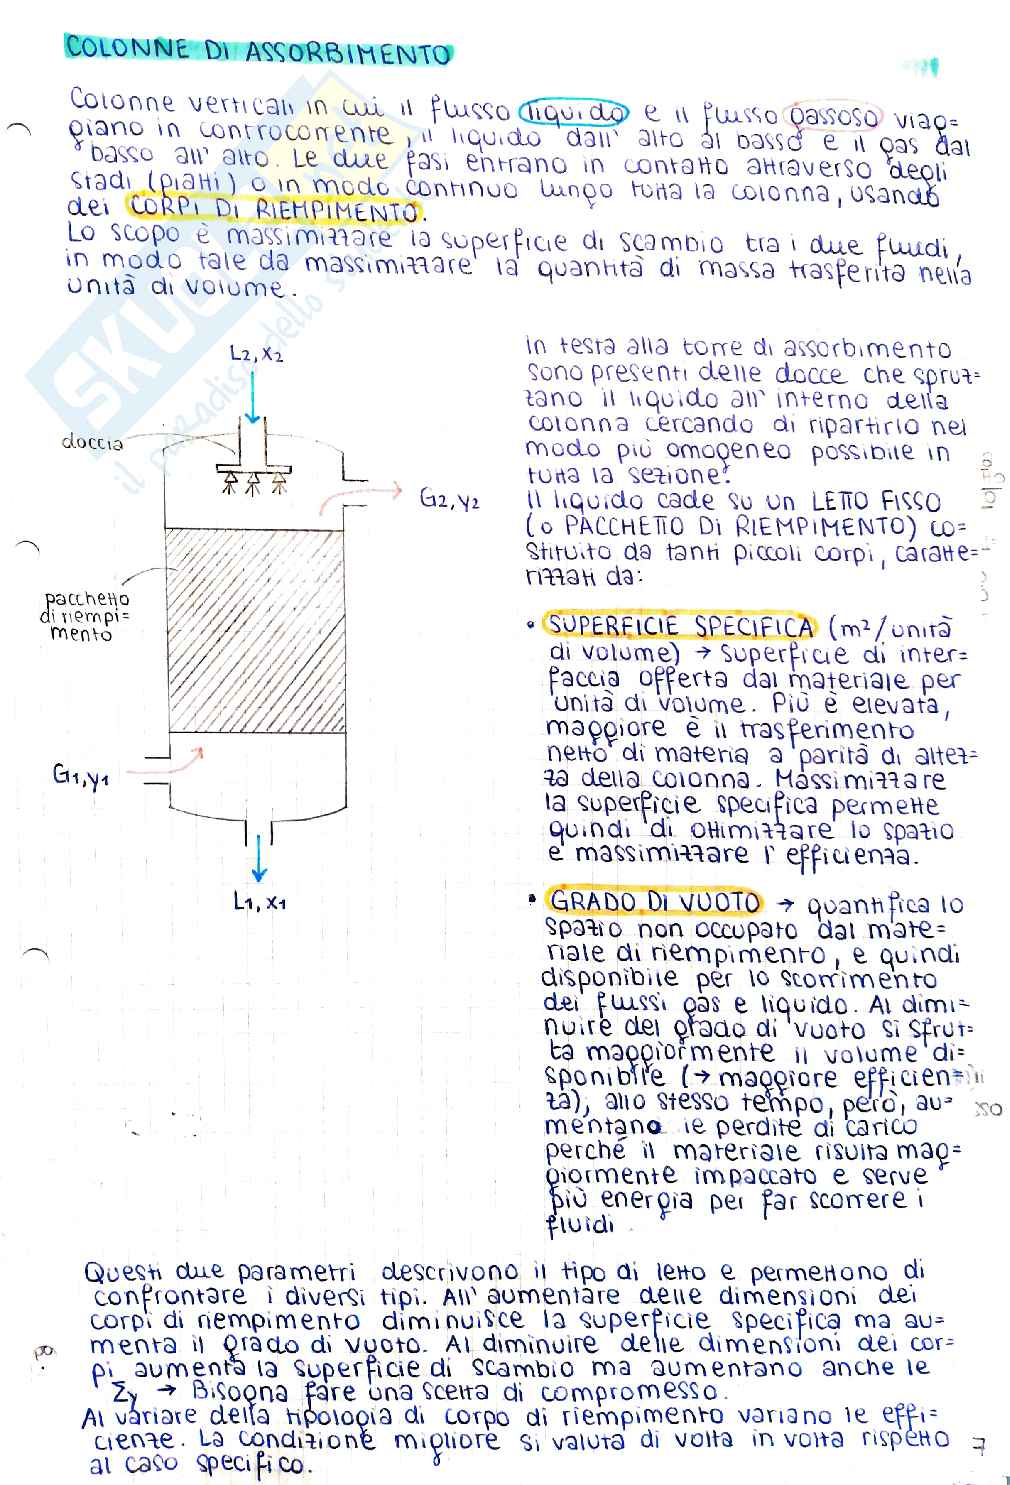 COLONNE DI ASSORBIMENTO
Colonne verticali in cui il flusso liquido e il flusso gassoso viag=
giano in controcorrente, il liquido dall' alto al basso e il gas dal
basso all' alto. Le due fasi entrano in contatto attraverso degli
stadi (piatti) o in modo continuo lungo tutta la colonna, usando
dei CORPI DI RIEMPIMENTO.
Lo scopo è massimizzare la superficie di scambio tra i due fluidi,
in modo tale da massimizzare la quantità di massa trasferita nella
unità di volume.
L2, x2
doccia
G2, y2
pacchetto
di riempi=
mento
G1, y1
L1, x1
in testa alla torre di assorbimento
sono presenti delle docce che spruz=
zano il liquido all' interno della
colonna cercando di ripartirlo nel
modo più omogeneo possibile in
tutta la sezione.
Il liquido cade su un LETTO FISSO
(o PACCHETTO DI RIEMPIMENTO) co=
stituito da tanti piccoli corpi, caratte=
rizzati da:
• SUPERFICIE SPECIFICA (m²/unità
di volume) → superficie di inter=
faccia offerta dal materiale per
unità di volume. Più è elevata,
maggiore è il trasferimento
netto di materia a parità di altez=
za della colonna. Massimizzare
la superficie specifica permette
quindi di ottimizzare lo spazio
e massimizzare l' efficienza.
• GRADO DI VUOTO → quantifica lo
spazio non occupato dal mate=
riale di riempimento, e quindi
disponibile per lo scorrimento
dei flussi gas e liquido. Al dimi=
nuire del grado di vuoto si sfrut=
ta maggiormente il volume di=
sponibile (→ maggiore efficien=
za); allo stesso tempo, però, au=
mentano le perdite di carico
perché il materiale risulta mag=
giormente impaccato e serve
più energia per far scorrere i
fluidi.
Questi due parametri descrivono il tipo di letto e permettono di
confrontare i diversi tipi. All' aumentare delle dimensioni dei
corpi di riempimento diminuisce la superficie specifica ma au=
menta il grado di vuoto. Al diminuire delle dimensioni dei cor=
pi aumenta la superficie di scambio ma aumentano anche le
Σy → Bisogna fare una scelta di compromesso.
Al variare della tipologia di corpo di riempimento variano le effi=
cienze. La condizione migliore si valuta di volta in volta rispetto
al caso specifico.
7
SKUOLA.net
il paradiso dello studente